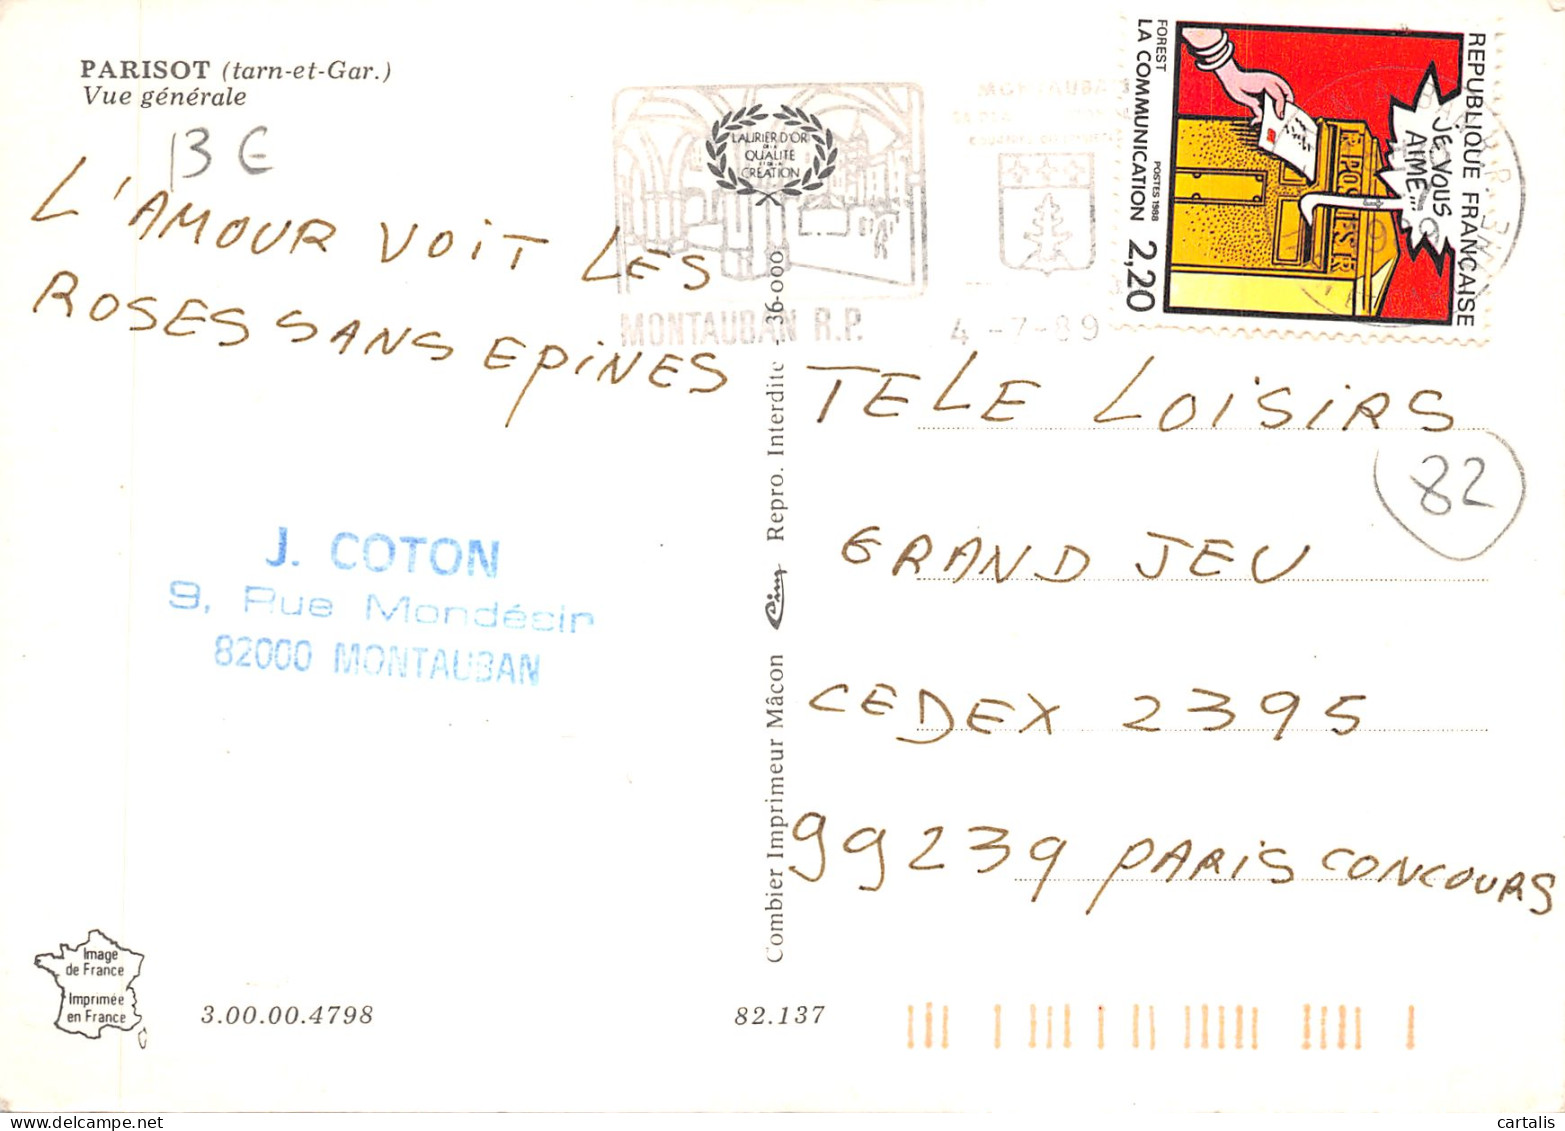 PARISOT (tarn-et-Gar.)
Vue générale
13 €
L'AMOUR VOIT LES
ROSES SANS EPINES
LAURIER D'OR
DE LA
QUALITÉ
ET DE LA
CRÉATION
MONTAUBAN R.P.
4 -7-89
MONTAUBAN
REPUBLIQUE FRANÇAISE
JE VOUS
AIME...
POSTES
FOREST
LA COMMUNICATION
POSTES 1988
2,20
TELE LOISIRS
82
GRAND JEU
CEDEX 2395
99239 PARIS CONCOURS
J. COTON
9, Rue Mondésir
82000 MONTAUBAN
Combier Imprimeur Mâcon Cim Repro. Interdite - 36-000
Image
de France
Imprimée
en France
3.00.00.4798
82.137
cartalis